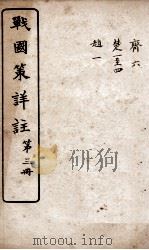 戰國策詳註 第三冊
齊六
楚一至四
趙一